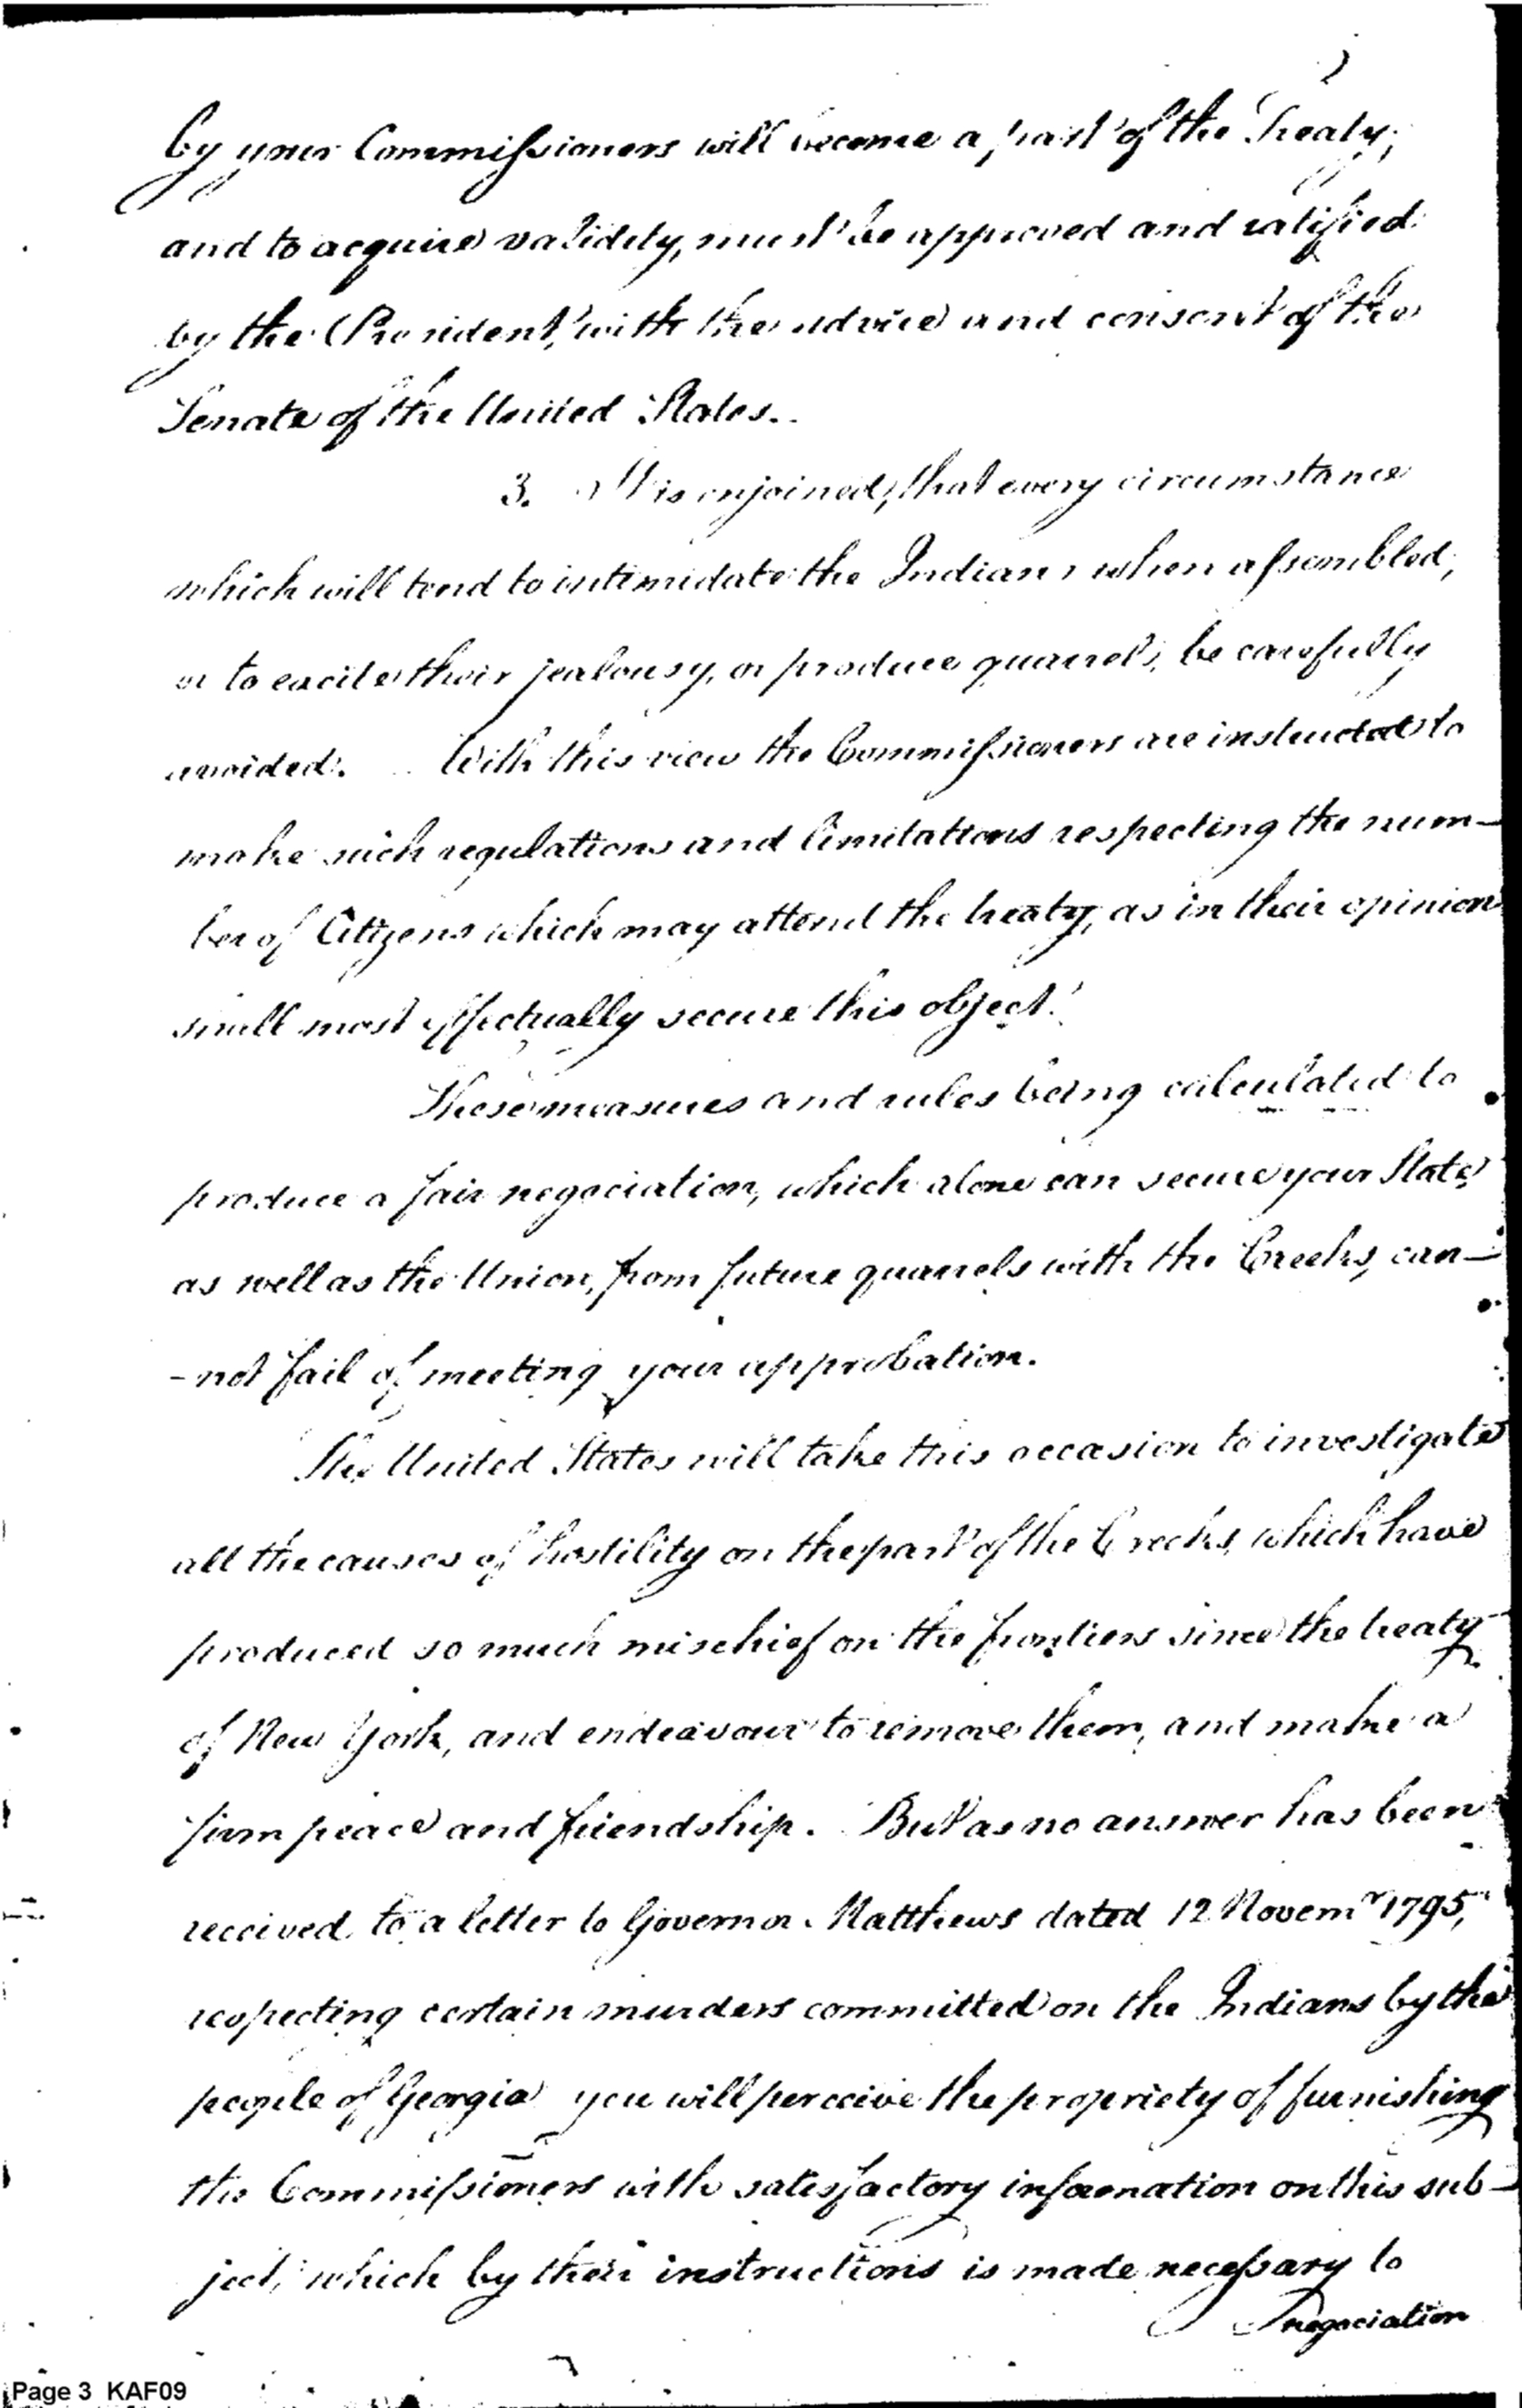 by your Commissioners will become a part of the Treaty;
and to acquire validity, must be approved and ratified
by the President, with the advice and consent of the
Senate of the United States.
3. It is enjoined, that every circumstance
which will tend to intimidate the Indians when assembled,
or to excite their jealousy, or produce quarrels, be carefully
avoided. With this view the Commissioners are instructed to
make such regulations and limitations respecting the num-
ber of Citizens which may attend the treaty, as in their opinion
shall most effectually secure this object.
These measures and rules being calculated to
produce a fair negociation, which alone can secure your State,
as well as the Union, from future quarrels with the Creeks, can-
-not fail of meeting your approbation.
The United States will take this occasion to investigate
all the causes of hostility on the part of the Creeks, which have
produced so much mischief on the frontiers since the treaty
of New York, and endeavour to remove them, and make a
firm peace and friendship. But as no answer has been
received to a letter to Governor Matthews dated 12 Novemr 1795,
respecting certain murders committed on the Indians by the
people of Georgia you will perceive the propriety of furnishing
the Commissioners with satisfactory information on this sub-
ject, which by their instructions is made necessary to
negociation
Page 3 KAF09